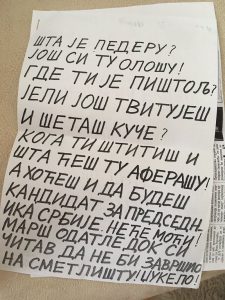 ШТА ЈЕ ПЕДЕРУ?
ЈОШ СИ ТУ ОЛОШУ!
ГДЕ ТИ ЈЕ ПИШТОЉ?
ЈЕЛИ ЈОШ ТВИТУЈЕШ
И ШЕТАШ КУЧЕ?
КОГА ТИ ШТИТИШ И
ШТА ЋЕШ ТУ АФЕРАШУ!
А ХОЋЕШ И ДА БУДЕШ
КАНДИДАТ ЗА ПРЕДСЕДН.
ИКА СРБИЈЕ. НЕЋЕ МОЋИ!
МАРШ ОДАТЛЕ ДОК СИ
ЧИТАВ ДА НЕ БИ ЗАВРШИО
НА СМЕТЛИШТУ! ЏУКЕЛО!